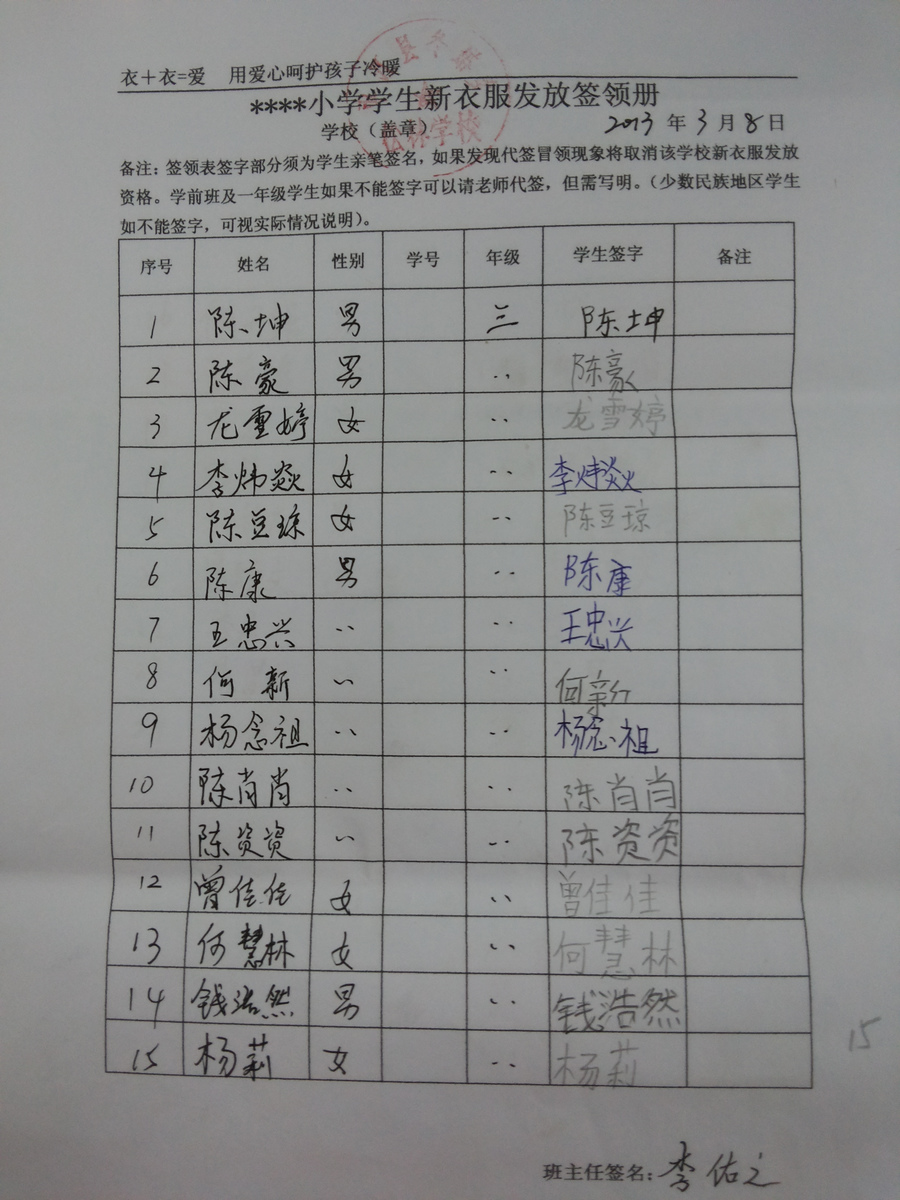 衣＋衣=爱 用爱心呵护孩子冷暖
****小学学生新衣服发放签领册
学校（盖章） 2013 年 3 月 8 日
备注：签领表签字部分须为学生亲笔签名，如果发现代签冒领现象将取消该学校新衣服发放
资格。学前班及一年级学生如果不能签字可以请老师代签，但需写明。（少数民族地区学生
如不能签字，可视实际情况说明）。
序号 姓名 性别 学号 年级 学生签字 备注
1 陈坤 男 三 陈坤
2 陈豪 男 ‥ 陈豪
3 龙雪婷 女 ‥ 龙雪婷
4 李炜焱 女 ‥ 李炜焱
5 陈豆琼 女 ‥ 陈豆琼
6 陈康 男 ‥ 陈康
7 王忠兴 ‥ ‥ 王忠兴
8 何新 ‥ ‥ 何新
9 杨念祖 ‥ ‥ 杨念祖
10 陈肖肖 ‥ ‥ 陈肖肖
11 陈资资 ‥ ‥ 陈资资
12 曾佳佳 女 ‥ 曾佳佳
13 何慧林 女 ‥ 何慧林
14 钱浩然 男 ‥ 钱浩然
15 杨莉 女 ‥ 杨莉
15
班主任签名：李佑之